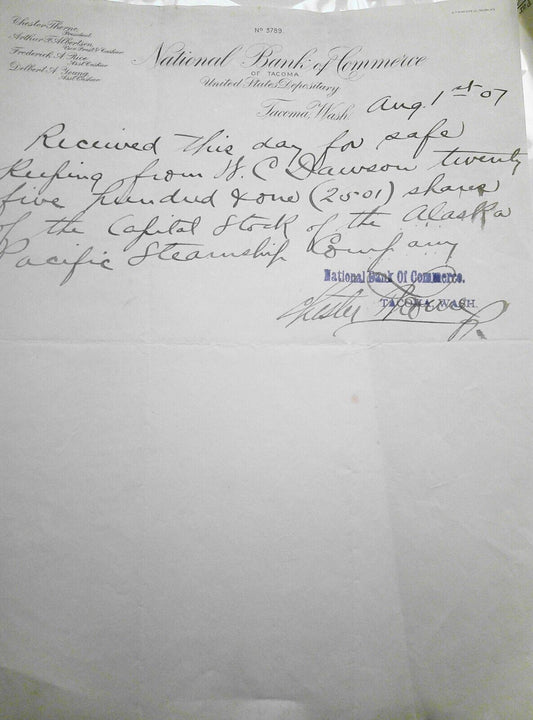 Nº 3789
Chester Thorne
President
Arthur F. Albertson
Vice Prest & Cashier
Frederick A. Rice
Asst. Cashier
Delbert A. Young
Asst. Cashier
National Bank of Commerce
OF TACOMA
United States Depositary
Tacoma, Wash. Aug. 1st 07
Received this day for safe
keeping from W. C Dawson twenty
five hundred & one (2501) shares
of the Capital Stock of the Alaska
Pacific Steamship Company
National Bank Of Commerce.
TACOMA, WASH.
Chester Thorne